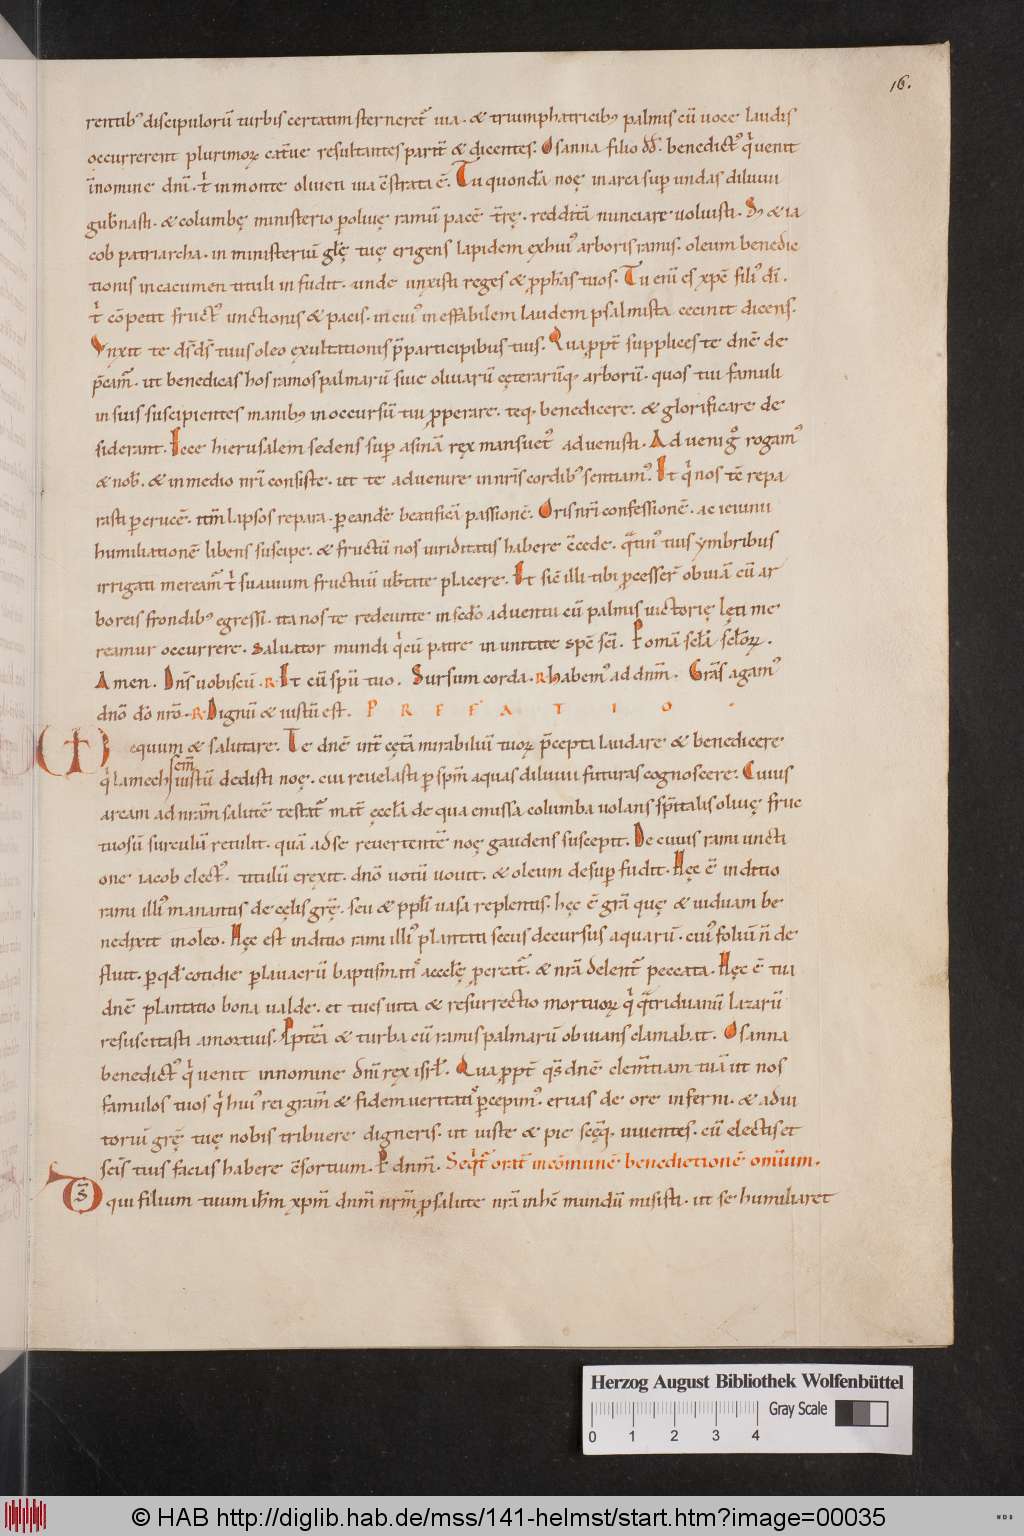 16.
rentib; discipuloru̅ turbis certatim sterneret᷒ uia. & triumphatricib; palmis cu̅ uoce laudis
occurrerent plurimoꝝ cat̅ue resultantes parit̅ & dicentes. Osanna filio dd̅. benedict᷒ qͥ uenit
i̅nomine dn̅i. t᷒ in monte oliueti uia c̅strata e̅. Tu quonda̅ noę in arca sup̲ undas diluuii
gub̅nasti. & columbę ministerio p̲ oliuę ramu̅ pace̅ t̅rę. reddita̅ nunciare uoluisti. & ia
cob patriarcha. in ministeriu̅ gl̅ę tuę erigens lapidem ex hui᷒ arboris ramis. oleum benedic
tionis in cacumen tituli in fudit. unde unxisti reges & p̲ph̅as tuos. Tu eni̅ es xp̅e fili᷒ di̅.
t᷒ co̅petit fruct᷒ unctionis & pacis. in cui᷒ in effabilem laudem psalmista cecinit dicens.
Vnxit te ds̅ ds̅ tuus oleo exultationis p̅ participibus tuis. Qua p̲pt̅ supplices te dn̅e de
p̅cam᷒. ut benedicas hos ramos palmaru̅ siue oliuaru̅ cęteraru̅q; arboru̅. quos tui famuli
in suis suscipientes manib; in occursu̅ tui p̲perare. teq; benedicere. & glorificare de
siderant. Ecce hierusalem sedens sup̲ asina̅ rex mansuet᷒ aduenisti. Adueni g͛ͦ rogam᷒
& nob̅. & in medio nr̅i consiste. ut te aduenire in nr̅is cordib᷒ sentiam᷒. Et qͥ nos te̅ repa
rasti p̲ cruce̅. itm̅ lapsos repara. p̲ eande̅ beatifica̅ passione̅. Oris nr̅i confessione̅. ac ieiunii
humiliatione̅ libens suscipe. & fructu̅ nos uiriditatis habere c̅cede. q̅tin᷒ tuis ymbribus
irrigati meream᷒ t᷒ suauium fructuu̅ ub̅tate placere. Et sic̅ illi tibi p̲cesser̅ obuia̅ cu̅ ar
boreis frondib᷒ egressi. ita nos te redeunte in sc̅do aduentu cu̅ palmis uictorię lęti me
reamur occurrere. Saluator mundi qͥ cu̅ patre in unitate sp̅c sc̅i. P oma̅ scl̅a scl̅oꝝ.
Amen. Dn̅s uobiscu̅. R. Et cu̅ sp̅u tuo. Sursum corda. R. habem᷒ ad dnm̅. Gra̅s agam᷒
dn̅o do̅ nr̅o. R. Dignu̅ & iustu̅ est. P R E F A T I O.
equum & salutare. Te dn̅e int̅ cęt̅a mirabiliu̅ tuoꝝ p̅cepta laudare & benedicere
qͥ lamech sem̅ iustu̅ dedisti noę. cui reuelasti p̲ spm̅ aquas diluuii futuras cognoscere. Cuius
arcam ad nr̅am salute̅ testat᷒ mat̅ ęccl̅a de qua emissa columba uolans sp̅italis oliuę fruc
tuosu̅ surculu̅ retulit. qua̅ ad se reuertente̅ noę gaudens suscepit. De cuius rami uncti
one iacob elect᷒. titulu̅ erexit. dn̅o uotu̅ uouit. & oleum desup̲ fudit. Hęc e̅ inditio
rami illi᷒ manantis de cęlis gr̅ę. seu & p̲pli̅ uasa replentis. hęc e̅ gra̅ quę & uiduam be
nedixit in oleo. Hęc est inditio rami illi᷒ plantati secus decursus aquaru̅. cui᷒ foliu̅ n̅ de
fluit. p̲ qd̅ cotidie p̲ lauacru̅ baptismati᷒ accele̅ p̲creat᷒. & nr̅a delent᷒ peccata. Hęc e̅ tua
dn̅e plantatio bona ualde. et tu es uita & resurrectio mortuoꝝ qͥ q̅triduanu̅ lazaru̅
resuscitasti a mortuis. Ppt̅ea̅ & turba cu̅ ramis palmaru̅ obuians clamabat. Osanna
benedict᷒ qͥ uenit in nomine dn̅i rex isrl̅. Qua p̲pt̅ qs̅ dn̅e clem̅tiam tua̅ ut nos
famulos tuos qͥ hui᷒ rei gr̅am & fidem ueritati᷒ p̲cepim᷒. eruas de ore inferni. & adiu
toriu̅ gr̅ę tuę nobis tribuere digneris. ut iuste & pie sc̅ęq; uiuentes. cu̅ electis et
sc̅is tuis facias habere c̅sortium. P dnm̅. Seqt᷒ orat̅ in co̅mune̅ benedictione̅ omi̅um.
Ds̅ qui filium tuum ihm̅ xpm̅ dnm̅ nr̅m p̲ salute nr̅a in hc̅ mundu̅ misisti. ut se humiliaret
Herzog August Bibliothek Wolfenbüttel
Gray Scale
0 1 2 3 4
© HAB http://diglib.hab.de/mss/141-helmst/start.htm?image=00035